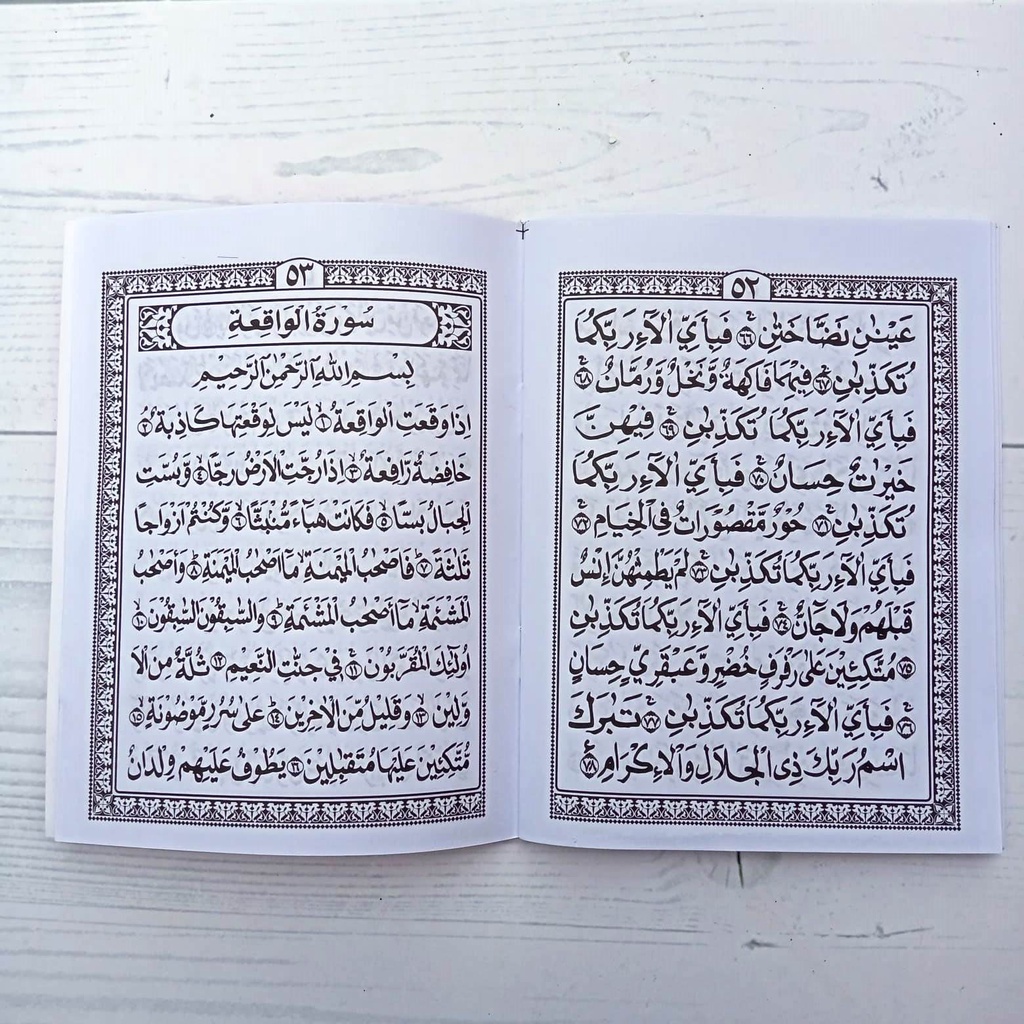 ٥٢
عَيْنٰنِ نَضَّاخَتٰنِ ۚ ٦٦ فَبِأَيِّ اٰلَآءِ رَبِّكُمَا
تُكَذِّبٰنِ ٦٧ فِيْهِمَا فَاكِهَةٌ وَّنَخْلٌ وَّرُمَّانٌ ۚ ٦٨
فَبِأَيِّ اٰلَآءِ رَبِّكُمَا تُكَذِّبٰنِ ۚ ٦٩ فِيْهِنَّ
خَيْرٰتٌ حِسَانٌ ۚ ٧٠ فَبِأَيِّ اٰلَآءِ رَبِّكُمَا
تُكَذِّبٰنِ ۚ ٧١ حُوْرٌ مَّقْصُوْرَاتٌ فِى الْخِيَامِ ۚ ٧٢
فَبِأَيِّ اٰلَآءِ رَبِّكُمَا تُكَذِّبٰنِ ۚ ٧٣ لَمْ يَطْمِثْهُنَّ اِنْسٌ
قَبْلَهُمْ وَلَا جَآنٌّ ۚ ٧٤ فَبِأَيِّ اٰلَآءِ رَبِّكُمَا تُكَذِّبٰنِ
٧٥ مُتَّكِئِيْنَ عَلٰى رَفْرَفٍ خُضْرٍ وَّعَبْقَرِيٍّ حِسَانٍ
ۚ ٧٦ فَبِأَيِّ اٰلَآءِ رَبِّكُمَا تُكَذِّبٰنِ ۚ ٧٧ تَبٰرَكَ
اسْمُ رَبِّكَ ذِى الْجَلَالِ وَالْاِكْرَامِ ٧٨
٥٣
سُوْرَةُ الْوَاقِعَةِ
بِسْمِ اللهِ الرَّحْمٰنِ الرَّحِيْمِ
اِذَا وَقَعَتِ الْوَاقِعَةُ ۙ ١ لَيْسَ لِوَقْعَتِهَا كَاذِبَةٌ ۘ ٢
خَافِضَةٌ رَّافِعَةٌ ۙ ٣ اِذَا رُجَّتِ الْاَرْضُ رَجًّا ۙ ٤ وَّبُسَّتِ
الْجِبَالُ بَسًّا ۙ ٥ فَكَانَتْ هَبَآءً مُّنْۢبَثًّا ۙ ٦ وَّكُنْتُمْ اَزْوَاجًا
ثَلٰثَةً ۗ ٧ فَاَصْحٰبُ الْمَيْمَنَةِ مَآ اَصْحٰبُ الْمَيْمَنَةِ ۗ ٨ وَاَصْحٰبُ
الْمَشْئَمَةِ مَآ اَصْحٰبُ الْمَشْئَمَةِ ۗ ٩ وَالسّٰبِقُوْنَ السّٰبِقُوْنَ ۙ ١٠
اُولٰٓئِكَ الْمُقَرَّبُوْنَ ۚ ١١ فِيْ جَنّٰتِ النَّعِيْمِ ١٢ ثُلَّةٌ مِّنَ الْاَ
وَّلِيْنَ ۙ ١٣ وَقَلِيْلٌ مِّنَ الْاٰخِرِيْنَ ۗ ١٤ عَلٰى سُرُرٍ مَّوْضُوْنَةٍ ۙ ١٥
مُّتَّكِئِيْنَ عَلَيْهَا مُتَقٰبِلِيْنَ ١٦ يَطُوْفُ عَلَيْهِمْ وِلْدَانٌ